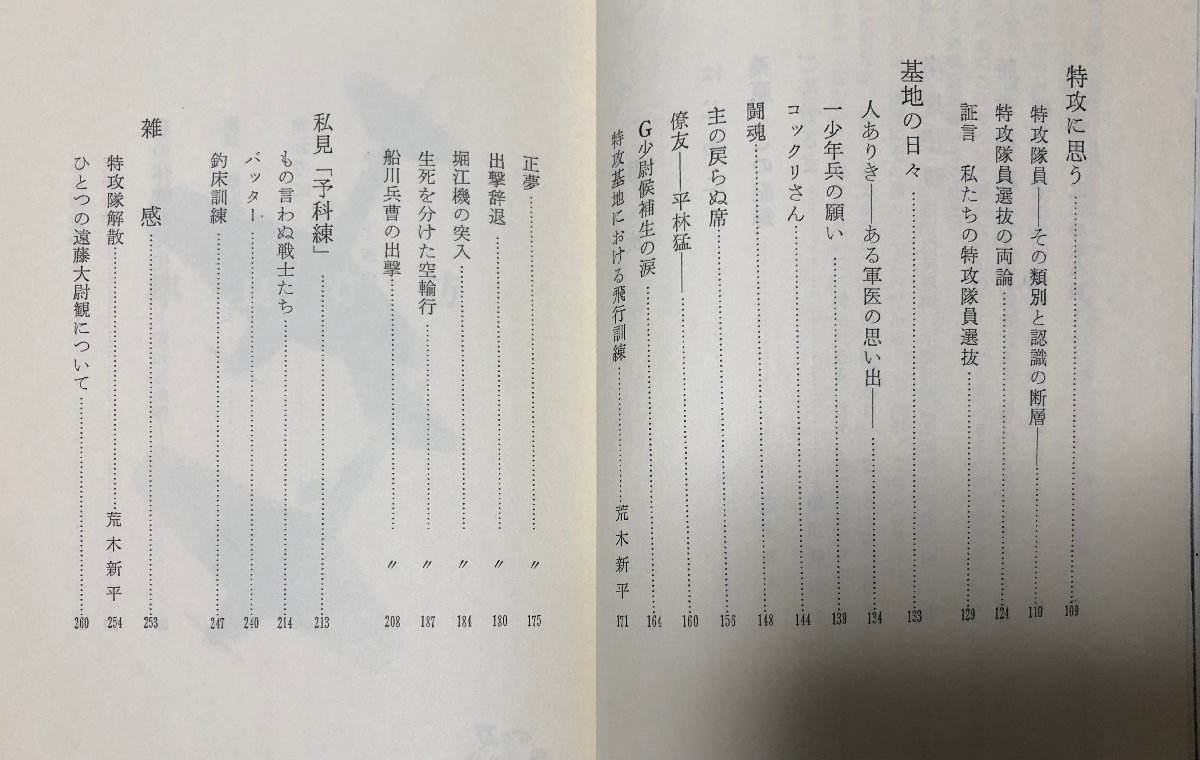 特攻に思う……………………109
特攻隊員――その類別と認識の断層――……………110
特攻隊員選抜の両論……………………124
証言　私たちの特攻隊員選抜……………………129
基地の日々……………………133
人ありき――ある軍医の思い出――……………134
一少年兵の願い……………………139
コックリさん……………………144
闘魂……………………148
主の戻らぬ席……………………156
僚友――平林猛――……………………160
G少尉候補生の涙……………………164
特攻基地における飛行訓練……………荒木新平 171
正夢……………………〃 175
出撃辞退……………………〃 180
堀江機の突入……………………〃 184
生死を分けた空輸行……………………〃 187
船川兵曹の出撃……………………〃 208
私見「予科練」……………………213
もの言わぬ戦士たち……………………214
バッター……………………240
釣床訓練……………………247
雑　感……………………253
特攻隊解散……………………荒木新平 254
ひとつの遠藤大尉観について……………………260